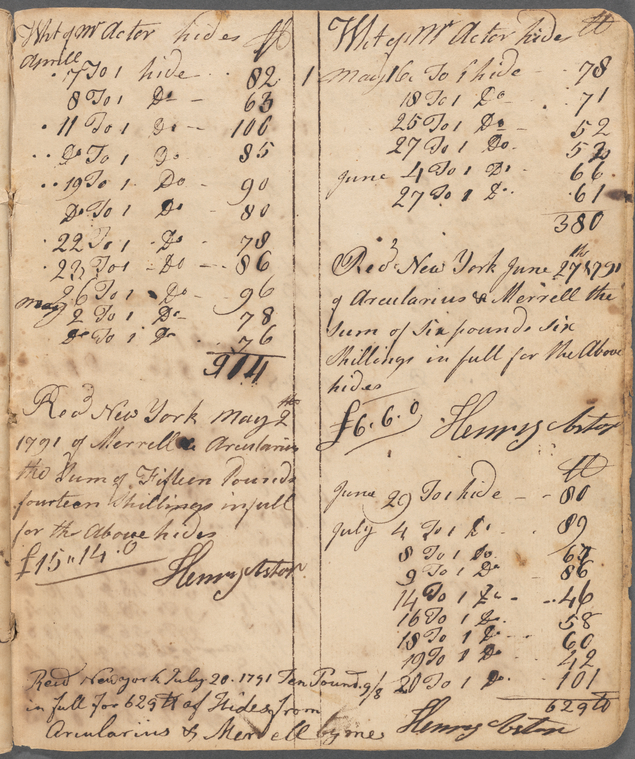 Wht of Mr Actor hides ℔
Aprill
7 To 1 hide 82
8 To 1 Do 63
11 To 1 Do 106
Do To 1 Do 85
19 To 1 Do 90
Do To 1 Do 80
22 To 1 Do 78
23 To 1 Do 86
26 To 1 Do 96
may
2 To 1 Do 78
Do To 1 Do 76
914
Recd New York may 2th
1791 of Merrell & Arcularius
the Sum of Fifteen Pounds
fourteen Shillings in full
for th Above hides
£15"14.0
Henry Astor
Wht of Mr Actor hide ℔
may 16 To 1 hide 78
18 To 1 Do 71
25 To 1 Do 52
27 To 1 Do 52
June 4 To 1 Do 66
27 To 1 Do 61
380
Recd New York June 27th 1791
of Arcularius & Merrell the
Sum of Six pounds six
Shillings in full for the Above
hides
£6.6.0 Henry Astor
℔
June 29 To 1 hide 80
July 4 To 1 Do 89
8 To 1 Do 67
9 To 1 Do 86
14 To 1 Do 46
16 To 1 Do 58
18 To 1 Do 60
19 To 1 Do 42
20 To 1 Do 101
629 ℔
Recd New york July 20 1791 Ten Pound 9/8
in full for 629 ℔ of Hides from
Arcularius & Merrell by me Henry Astor